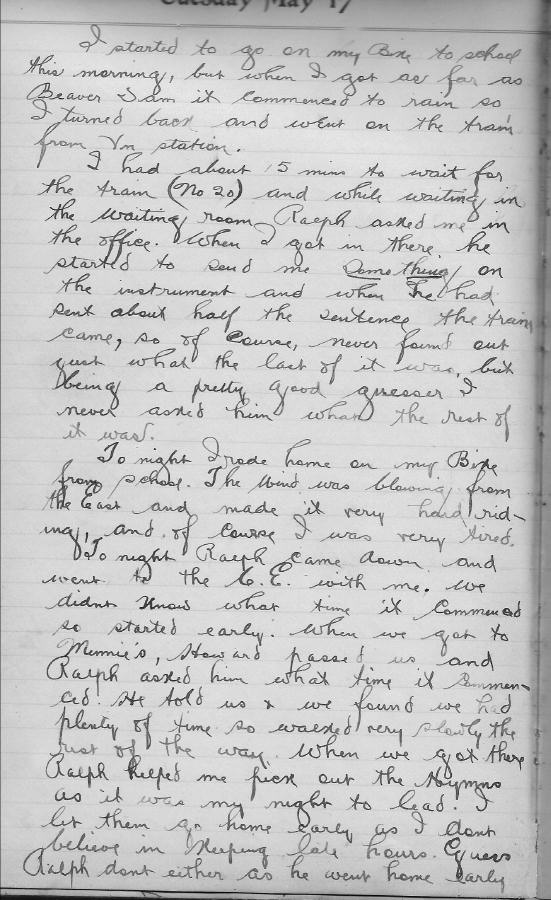 Tuesday May 17
I started to go on my Bike to school
this morning, but when I got as far as
Beaver Dam it commenced to rain so
I turned back and went on the train
from Vn station.
I had about 15 mins to wait for
the train (No 20) and while waiting in
the waiting room Ralph asked me in
the office. When I got in there he
started to send me something on
the instrument and when he had
sent about half the sentence the train
came, so of course, never found out
just what the last of it was, but
being a pretty good guesser I
never asked him what the rest of
it was.
To night I rode home on my Bike
from school. The wind was blowing from
the East and made it very hard rid-
ing, and of course I was very tired.
To night Ralph came down and
went to the C.E. with me. We
didnt know what time it commenced
so started early. When we got to
Minnie's, Howard passed us and
Ralph asked him what time it commen-
ced. He told us & we found we had
plenty of time so walked very slowly the
rest of the way. When we got there
Ralph helped me pick out the Hymns
as it was my night to lead. I
let them go home early as I dont
believe in keeping late hours. Guess
Ralph dont either as he went home early